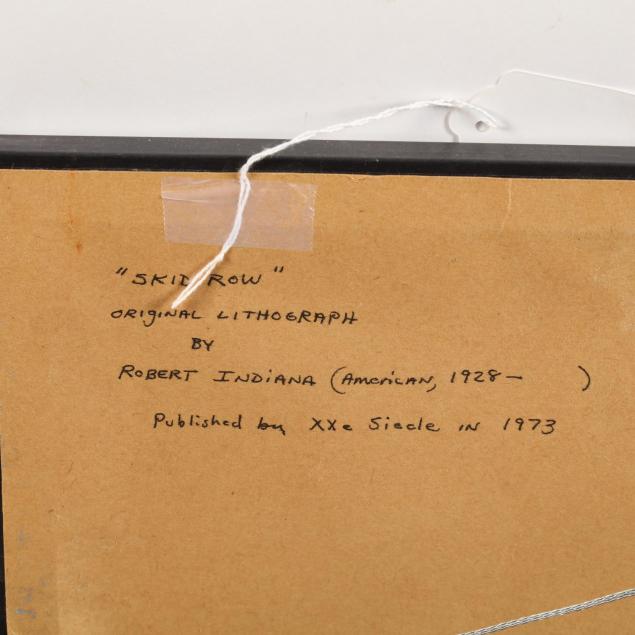 "SKID ROW"
ORIGINAL LITHOGRAPH
BY
ROBERT INDIANA (AMERICAN, 1928-        )
Published by XXe Siecle IN 1973